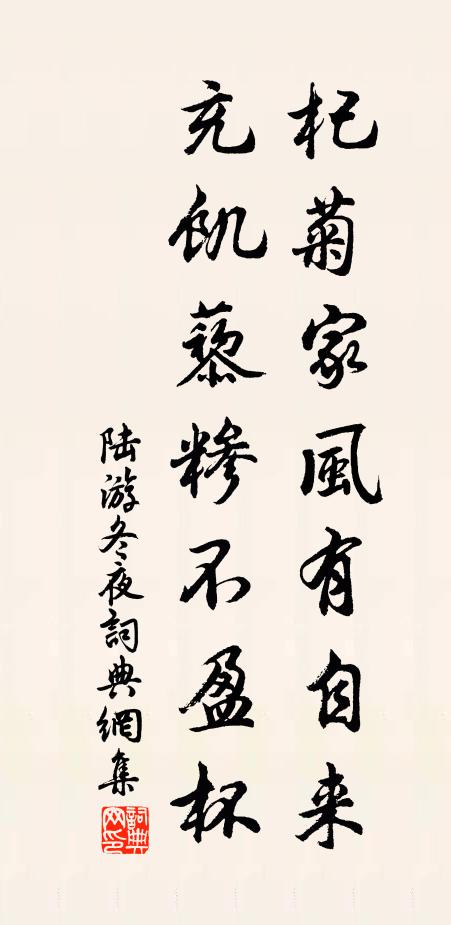 杞菊家風有自来
充飢藜糝不盈杯
陸游冬夜詞典網集
詞典网印